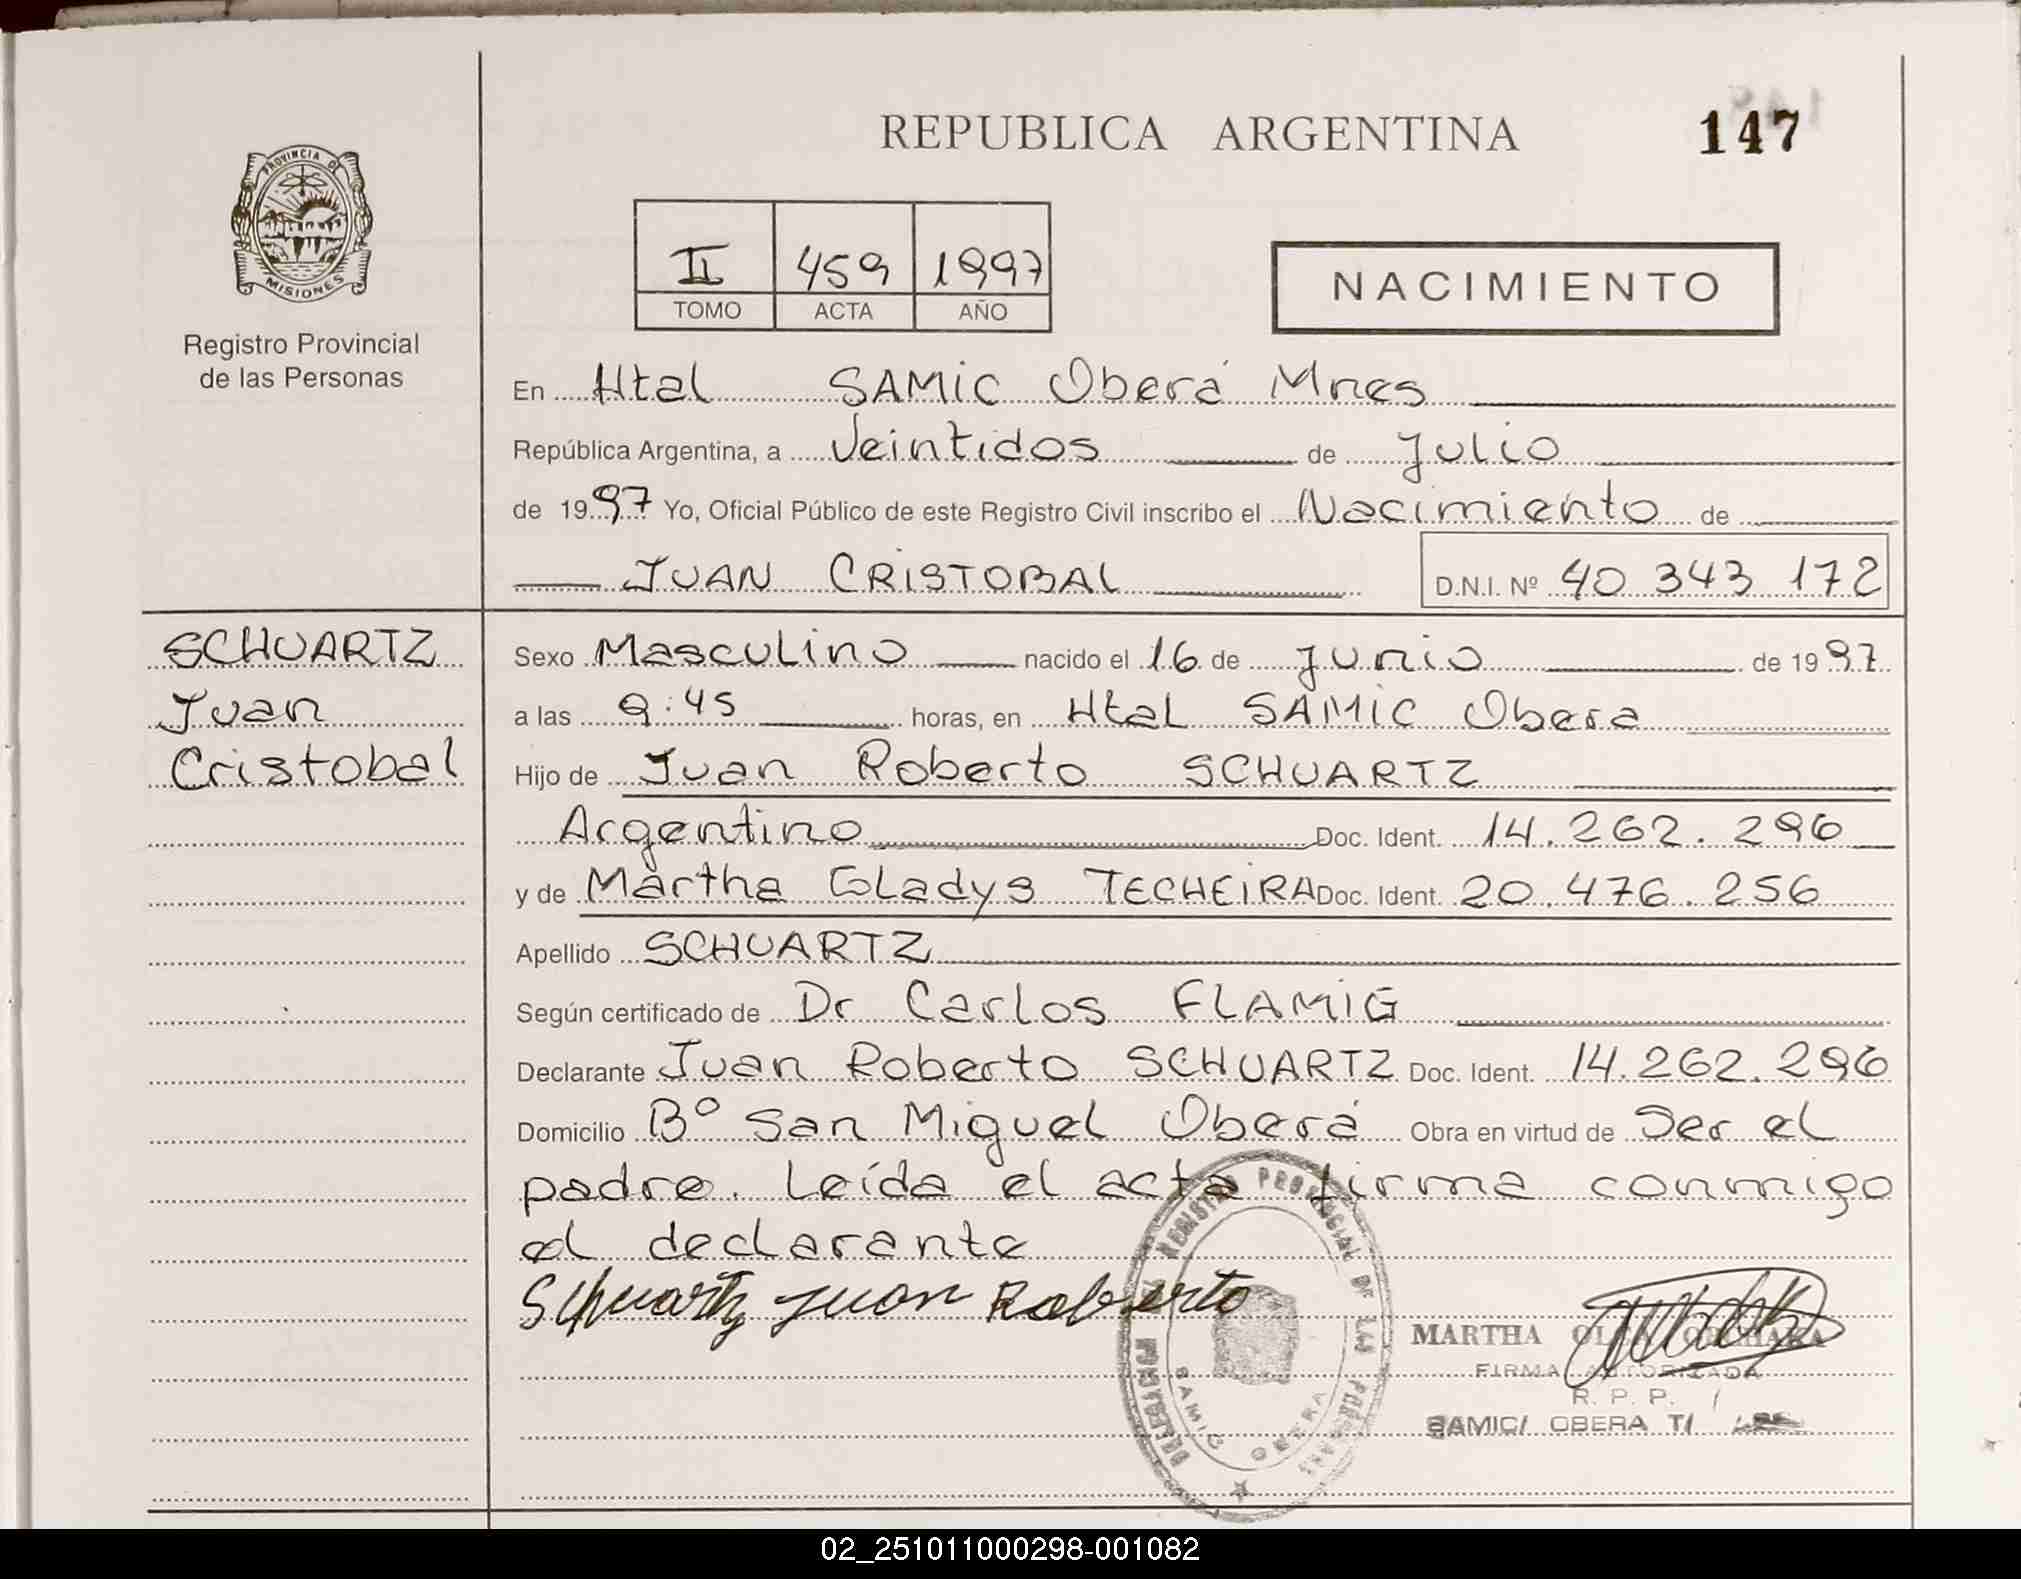 REPUBLICA ARGENTINA
147
PROVINCIA DE
MISIONES
Registro Provincial
de las Personas
II 459 1997
TOMO ACTA AÑO
NACIMIENTO
En Htal SAMIC Oberá Mnes
República Argentina, a Veintidos de Julio
de 1997 Yo, Oficial Público de este Registro Civil inscribo el Nacimiento de
JUAN CRISTOBAL D.N.I. Nº 40 343 172
SCHUARTZ
Juan
Cristobal
Sexo Masculino nacido el 16 de junio de 1997
a las 9:45 horas, en Htal SAMIC Obera
Hijo de Juan Roberto SCHUARTZ
Argentino Doc. Ident. 14.262.296
y de Martha Gladys TECHEIRA Doc. Ident. 20.476.256
Apellido SCHUARTZ
Según certificado de Dr Carlos FLAMIG
Declarante Juan Roberto SCHUARTZ Doc. Ident. 14.262.296
Domicilio Bº San Miguel Oberá Obra en virtud de Ser el
padre. Leída el acta firma conmigo
el declarante
Schuartz Juan Roberto
REGISTRO PROVINCIAL DE LAS PERSONAS
SAMIC OBERA
MARTHA OLGA
FIRMA AUTORIZADA
R. P. P.
SAMIC/ OBERA T/
02_251011000298-001082